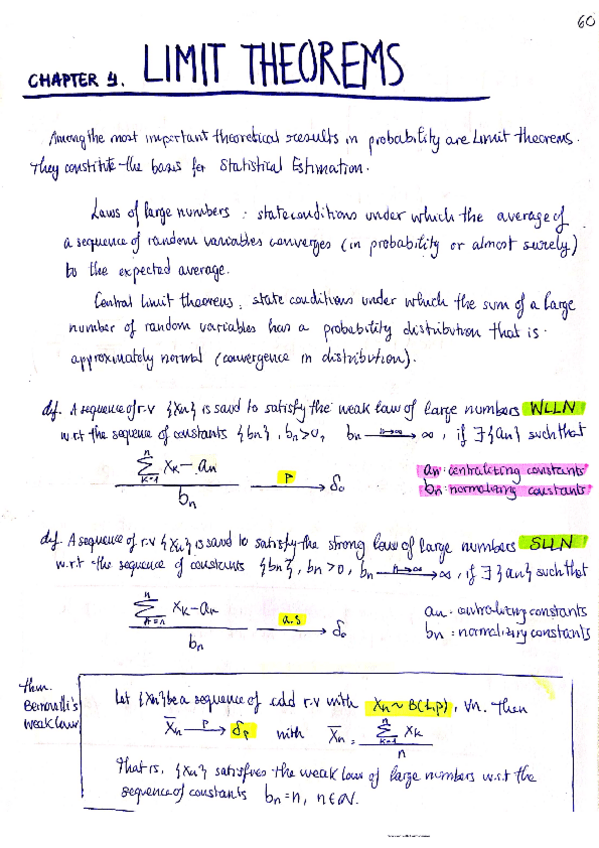 60
CHAPTER 4. LIMIT THEOREMS
Among the most important theoretical results in probability are Limit theorems.
They constitute the basis for Statistical Estimation.
Laws of large numbers : state conditions under which the average of
a sequence of random variables converges (in probability or almost surely)
to the expected average.
Central limit theorems : state conditions under which the sum of a large
number of random variables has a probability distribution that is
approximately normal (convergence in distribution).
def. A sequence of r.v {Xn} is said to satisfy the weak law of large numbers WLLN
w.r.t the sequence of constants {bn}, bn>0, bn →(n→∞) ∞, if ∃{an} such that
(∑_{k=1}^{n} Xk - an) / bn →(P) δ0
an: centralizing constants
bn: normalizing constants
def. A sequence of r.v {Xn} is said to satisfy the strong law of large numbers SLLN
w.r.t the sequence of constants {bn}, bn>0, bn →(n→∞) ∞, if ∃{an} such that
(∑^{n} Xk - an) / bn →(a.s) δ0
an : centralizing constants
bn : normalizing constants
thm.
Bernoulli's
weak law
Let {Xn} be a sequence of r.v with Xn ~ B(1,p), ∀n. Then
X̄n →(P) δp with X̄n = (∑_{k=1}^{n} Xk) / n
That is, {Xn} satisfies the weak law of large numbers w.r.t the
sequence of constants bn = n, n∈ℕ.